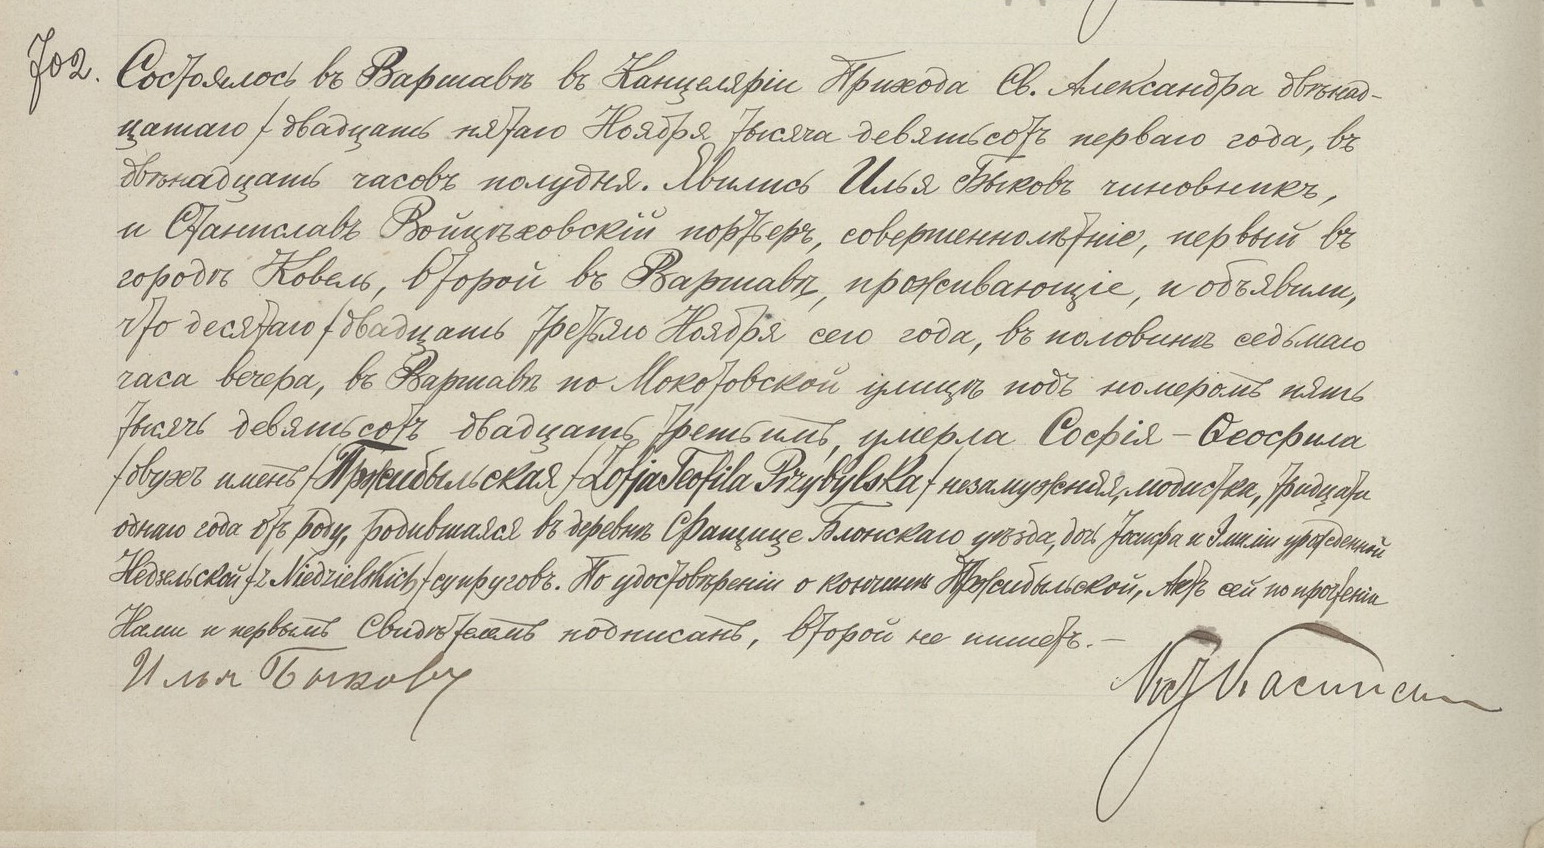 702.
Состоялось въ Варшавѣ въ Канцеляріи Прихода Св. Александра двѣнад-
цатаго / двадцать пятаго Ноября тысяча девятьсотъ перваго года, въ
двѣнадцать часовъ полудня. Явились Илья Быковъ чиновникъ,
и Станиславъ Войцѣховскій портьеръ, совершеннолѣтніе, первый въ
городѣ Ковель, второй въ Варшавѣ, проживающіе, и объявили,
что десятаго / двадцать третьяго Ноября сего года, въ половинѣ седьмаго
часа вечера, въ Варшавѣ по Мокотовской улицѣ подъ номеромъ пять
тысячъ девятьсотъ двадцать третьимъ, умерла Софія-Ѳеофила
/двухъ именъ/ Пржибыльская /Zofja Teofila Przybylska/ незамужняя, модистка, тридцати
однаго года отъ роду, родившаяся въ деревнѣ Блонскаго уѣзда, дочь Іосифа и Эмиліи урожденной
Недзельской /z Niedzielskich/ супруговъ. По удостовѣреніи о кончинѣ Пржибыльской, Актъ сей по прочтеніи
Нами и первымъ свидѣтелемъ подписанъ, второй не пишетъ. —
Илья Быковъ